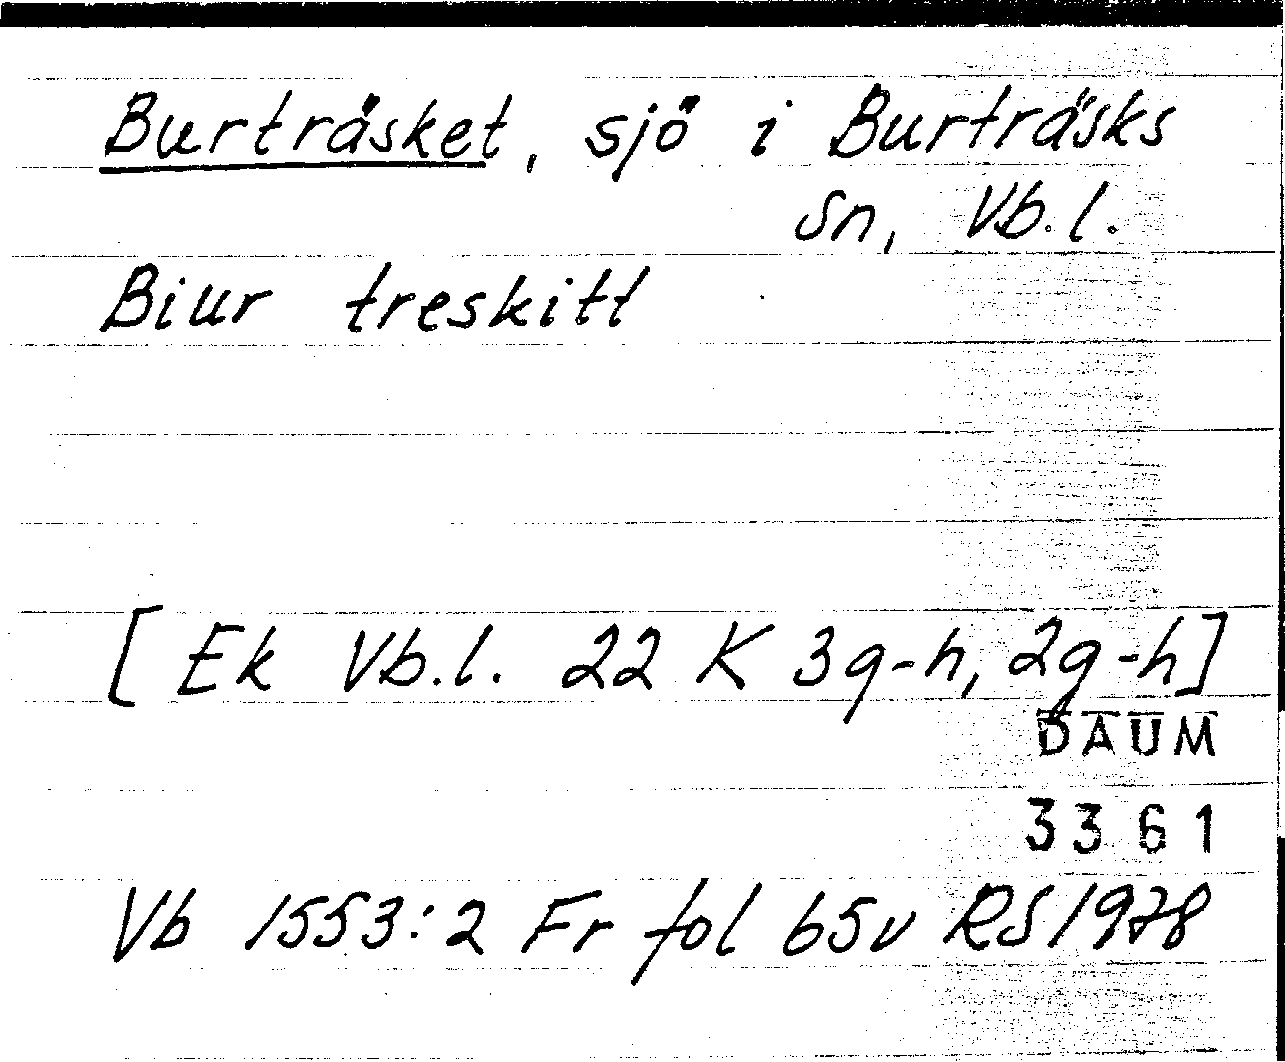 Burträsket, sjö i Burträsks
sn, Vb.l.
Biur treskitt
[ Ek Vb.l. 22 K 3g-h, 2g-h]
DAUM
3361
Vb 1553:2 Fr fol 65v RS 1978